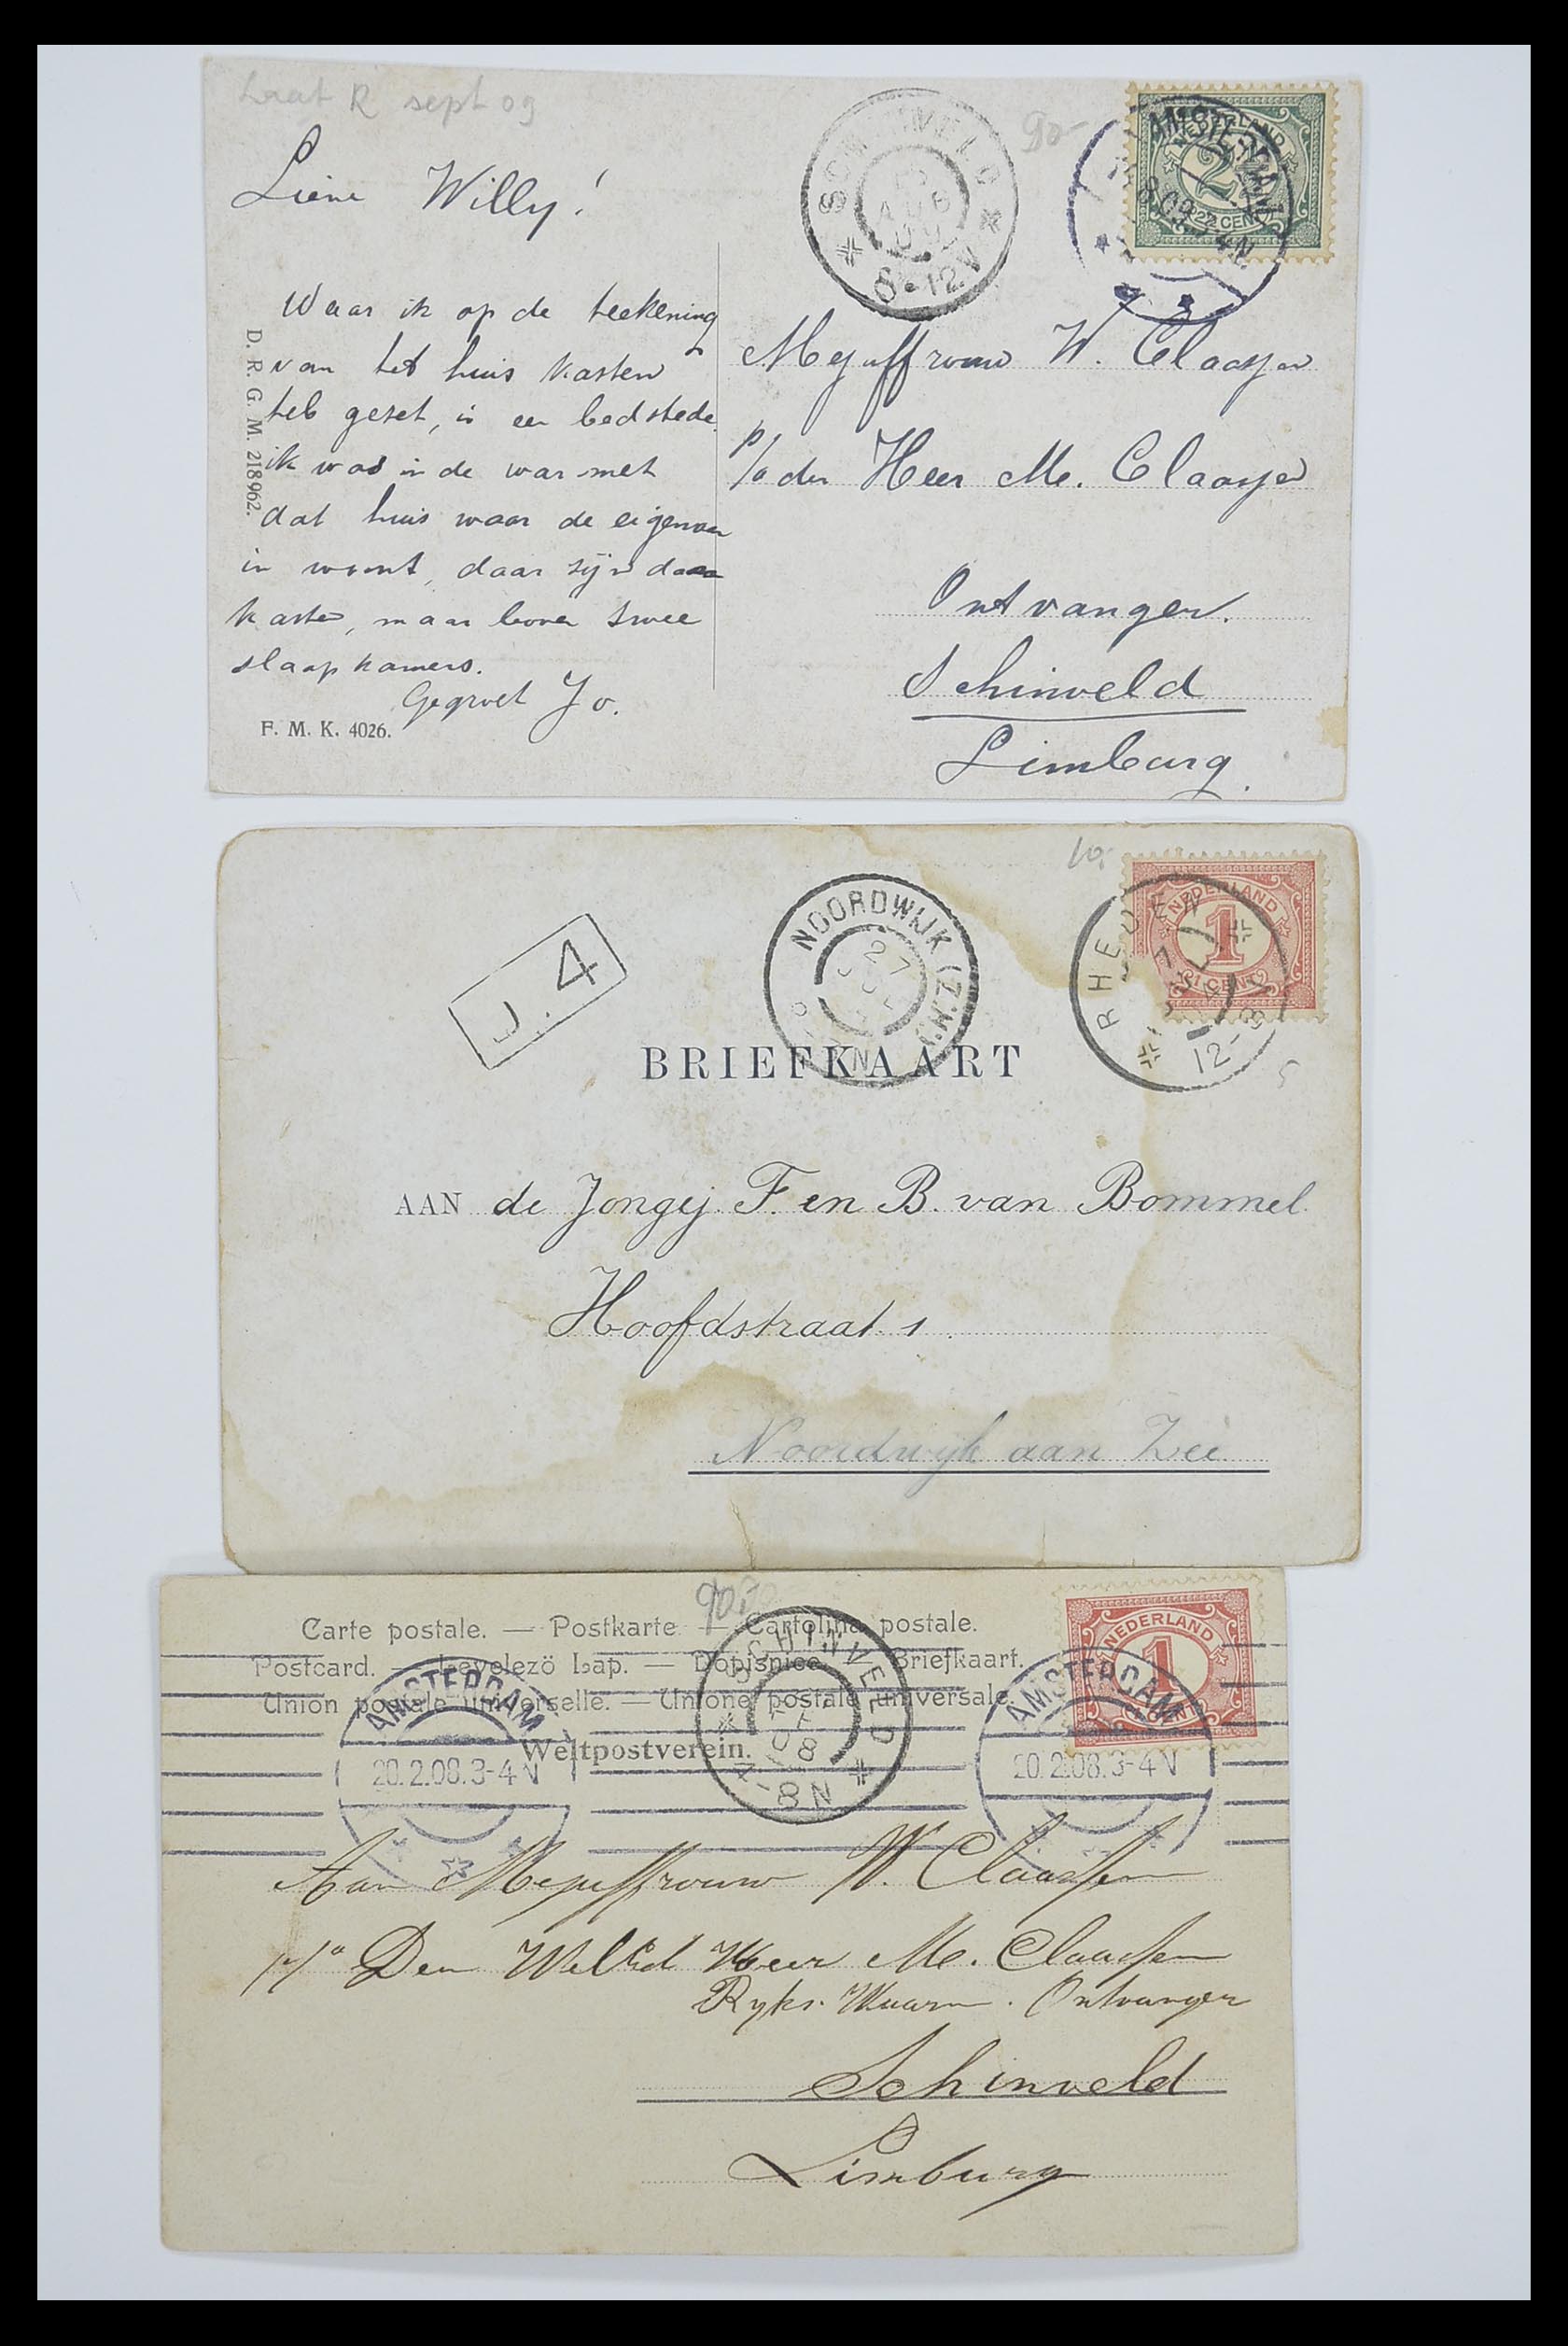 Laat R sept 09
90-
SCHINVELD
AUG
09
8-12V
AMSTERDAM
8.09. 4N
3
NEDERLAND
2½
2½ CENT
Lieve Willy!
Waar ik op de teekening
van het huis kasten
heb gezet, is een bedstede
ik was in de war met
dat huis waar de eigenaar
in woont, daar zijn
kasten, maar boven twee
slaapkamers.
Gegroet Jo.
D. R. G. M. 218962.
F. M. K. 4026.
Mejuffrouw W. Claassen
p/a den Heer M. Claassen
Ontvanger.
Schinveld
Limburg.
10,-
J. 4
NOORDWIJK (Z.H.)
27
N
RHEDEN
12-
NEDERLAND
1
1 CENT
BRIEFKAART
AAN de Jongej. F. en B. van Bommel
Hoofdstraat 1
Noordwijk aan Zee
90,-
Carte postale. — Postkarte — Cartolina postale.
Postcard. — Levelezö Lap. — Dopisnice — Briefkaart.
Union postale universelle. — Unione postale universale.
Weltpostverein.
AMSTERDAM
20.2.08.3-4N
SCHINVELD
08
-8N
AMSTERDAM
20.2.08.3-4N
NEDERLAND
1
1 CENT
Aan Mejuffrouw W. Claassen
p/a Den WelEd Heer M. Claassen
Ryks. Ontvanger
Schinveld
Limburg